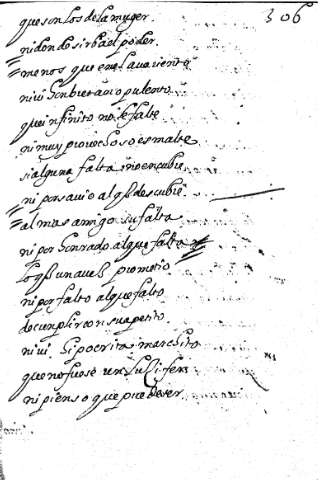 306
que son los de la muger.
ni donde sirba el poder.
menos que en el auariento
ni vi honbre auaro pulento
que infinito no le falte
ni muy prouechoso esmalte
si alguna falta no encubre
ni por sauio al q̃ descubre
al mas amigo su falta
ni por honrado al que falta
lo q̃ una ues prometio
ni por falto al que falto
de cunplir con su apetito.
ni vi hipocrita marchito
que no fuese un lucifer
ni pienso que puede ser